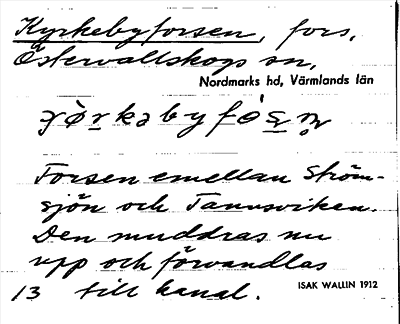 Kyrkebyforsen, fors,
Östervallskogs sn,
Nordmarks hd, Värmlands län
Forsen emellan Ström-
sjön och Tannsviken.
Den muddras nu
upp och förvandlas
13 till kanal.
ISAK WALLIN 1912